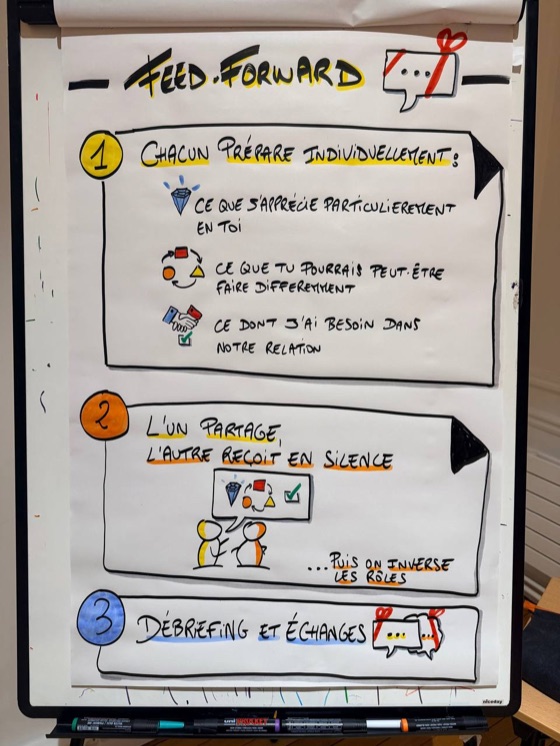 FEED-FORWARD
1
CHACUN PRÉPARE INDIVIDUELLEMENT:
CE QUE J'APPRÉCIE PARTICULIEREMENT
EN TOI
CE QUE TU POURRAIS PEUT-ÊTRE
FAIRE DIFFEREMMENT
CE DONT J'AI BESOIN DANS
NOTRE RELATION
2
L'UN PARTAGE,
L'AUTRE REÇOIT EN SILENCE
...PUIS ON INVERSE
LES RÔLES
3
DÉBRIEFING ET ÉCHANGES
nicéday